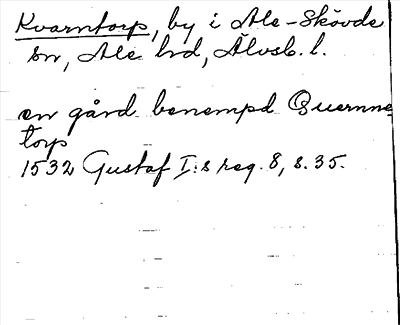 Kvarntorp, by i Ale-Skövde
sn, Ale hd, Älvsb. l.
en gård benempd Quernne-
torp
1532 Gustaf I:s reg. 8, s. 35.